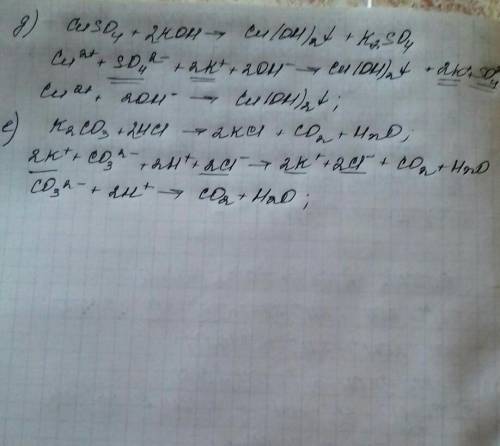 д) CuSO₄ + 2KOH → Cu(OH)₂↓ + K₂SO₄
Cu²⁺ + SO₄²⁻ + 2K⁺ + 2OH⁻ → Cu(OH)₂↓ + 2K⁺ + SO₄²⁻
Cu²⁺ + 2OH⁻ → Cu(OH)₂↓;
е) K₂CO₃ + 2HCl → 2KCl + CO₂ + H₂O;
2K⁺ + CO₃²⁻ + 2H⁺ + 2Cl⁻ → 2K⁺ + 2Cl⁻ + CO₂ + H₂O
CO₃²⁻ + 2H⁺ → CO₂ + H₂O;